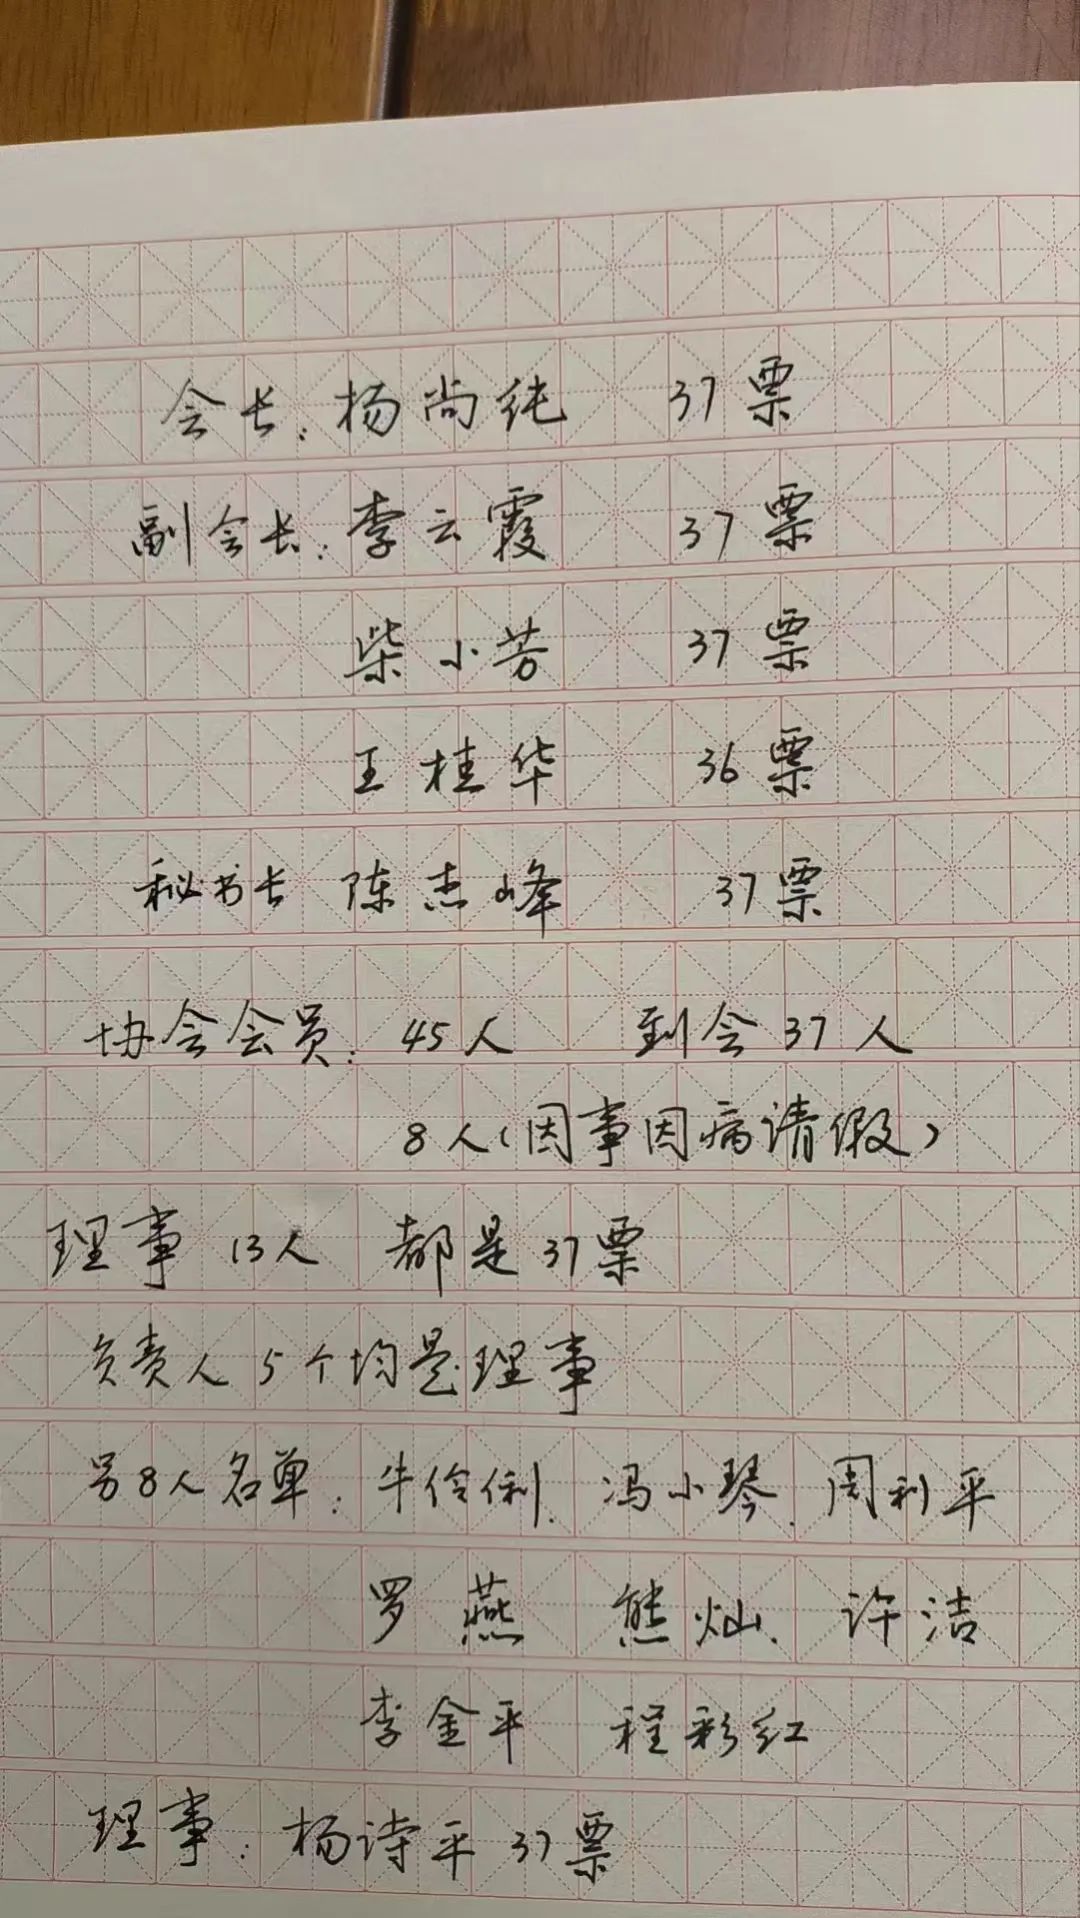 会长：杨尚纯 37票
副会长：李云霞 37票
柴小芳 37票
王桂华 36票
秘书长 陈杰峰 37票
协会会员：45人 到会37人
8人（因事因病请假）
理事 13人 都是37票
负责人5个均是理事
另8人名单：牛伶俐、冯小琴、周利平
罗燕 熊灿、许洁
李金平 程彩红
理事：杨诗平 37票